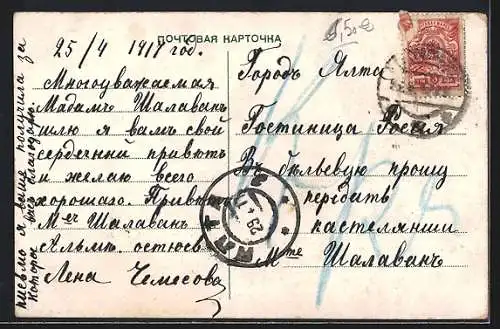 ПОЧТОВАЯ КАРТОЧКА
6,50€
25/4 1917 год.
Многоуважаемая
Мадамъ Шалаванъ
шлю я вамъ свой
сердечный приветъ
и желаю всего
хорошаго. Приветъ
Шалаванъ
остюсь
Лена Чемесова
письмо я ваше получила за
которое васъ благодарю
Городъ Ялта
Гостиница Россия
Въ бельевую прошу
пердать
кастелянши
Мте Шалаванъ
ЯЛТА
29